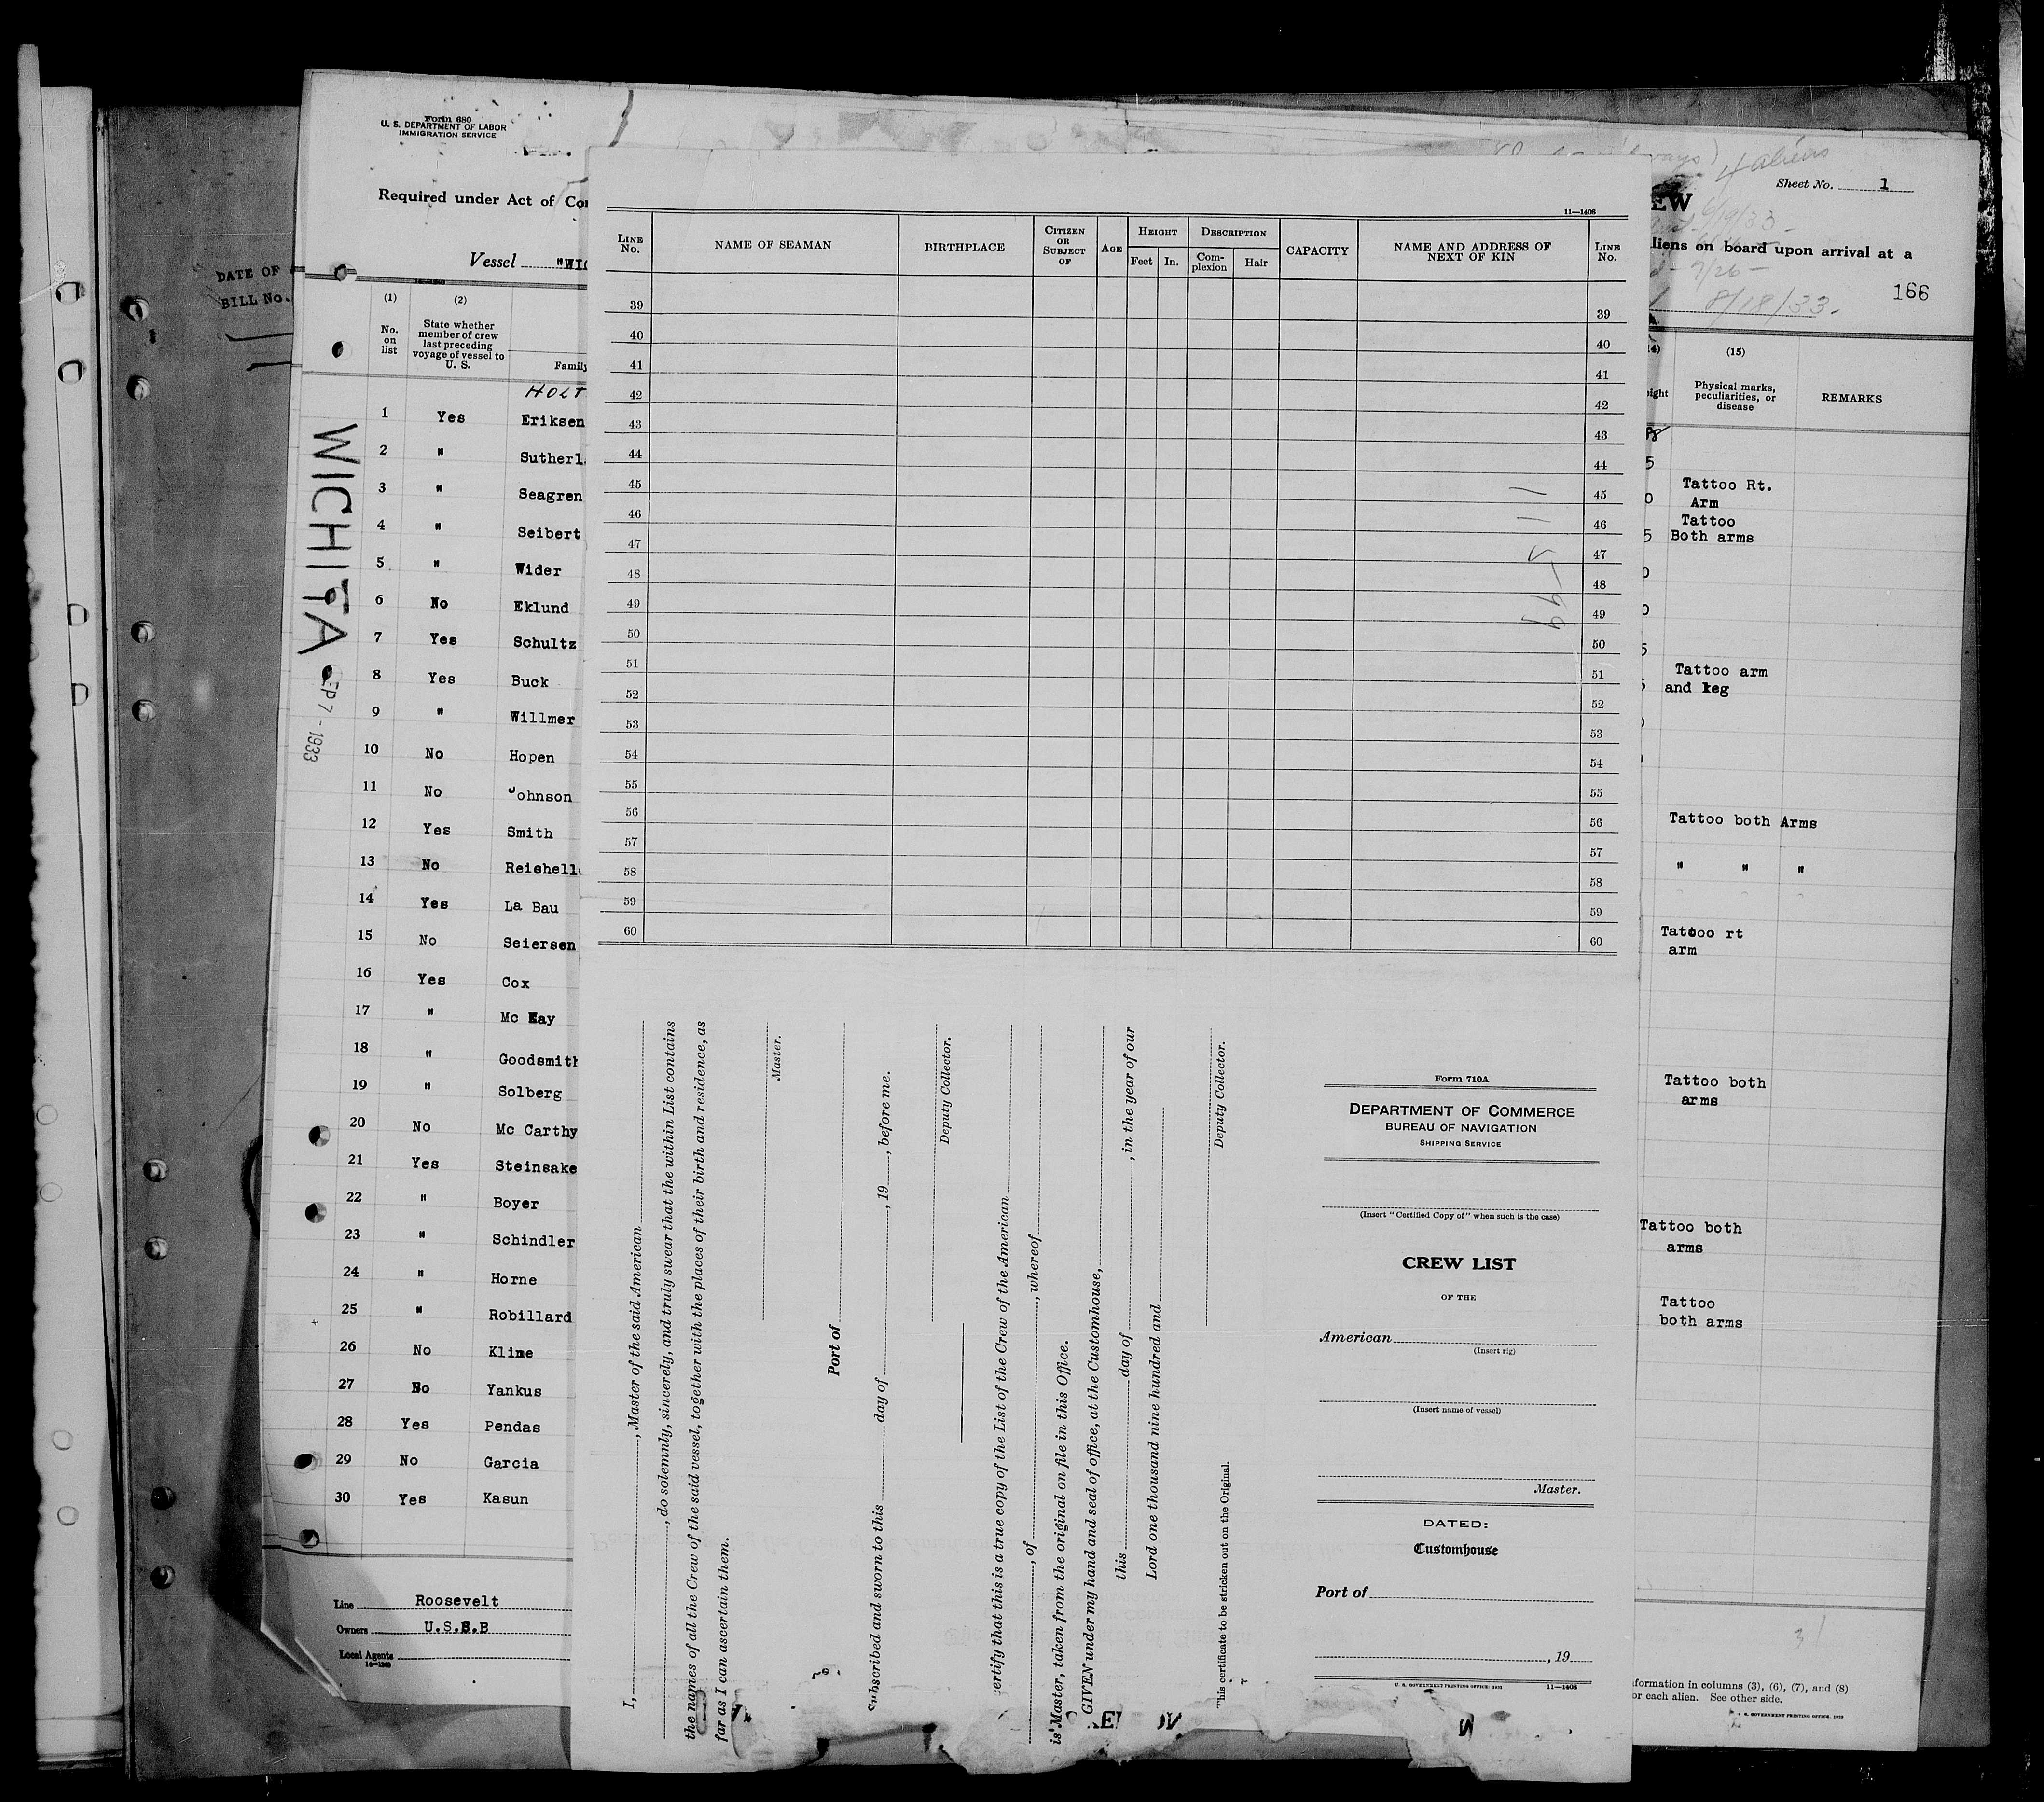 DATE OF
BILL No.
Form 680
U. S. DEPARTMENT OF LABOR
IMMIGRATION SERVICE
Required under Act of
Vessel "WIC
(1) (2)
No. on list
State whether member of crew last preceding voyage of vessel to U. S.
Family
HOLT
1 Yes Eriksen
2 " Sutherl
3 " Seagren
4 " Seibert
5 " Wider
6 No Eklund
7 Yes Schultz
8 Yes Buck
9 " Willmer
10 No Hopen
11 No Johnson
12 Yes Smith
13 No Reishell
14 Yes La Bau
15 No Seiersen
16 Yes Cox
17 " Mc Kay
18 " Goodsmith
19 " Solberg
20 No Mc Carthy
21 Yes Steinsake
22 " Boyer
23 " Schindler
24 " Horne
25 " Robillard
26 No Kline
27 No Yankus
28 Yes Pendas
29 No Garcia
30 Yes Kasun
WICHITA
SEP 7 - 1933
Line Roosevelt
Owners U.S.S.B
Local Agents
14—1240
11—1408
LINE No.
NAME OF SEAMAN
BIRTHPLACE
CITIZEN OR SUBJECT OF
AGE
HEIGHT
Feet In.
DESCRIPTION
Complexion Hair
CAPACITY
NAME AND ADDRESS OF NEXT OF KIN
LINE No.
39 39
40 40
41 41
42 42
43 43
44 44
45 45
46 46
47 47
48 48
49 49
50 50
51 51
52 52
53 53
54 54
55 55
56 56
57 57
58 58
59 59
60 60
I, , Master of the said American
, do solemnly, sincerely, and truly swear that the within List contains
the names of all the Crew of the said vessel, together with the places of their birth and residence, as
far as I can ascertain them.
Master.
Port of
Subscribed and sworn to this day of , 19 , before me.
Deputy Collector.
certify that this is a true copy of the List of the Crew of the American
, of , whereof
is Master, taken from the original on file in this Office.
GIVEN under my hand and seal of office, at the Customhouse,
this day of , in the year of our
Lord one thousand nine hundred and
Deputy Collector.
This certificate to be stricken out on the Original.
Form 710A
DEPARTMENT OF COMMERCE
BUREAU OF NAVIGATION
SHIPPING SERVICE
(Insert "Certified Copy of" when such is the case)
CREW LIST
OF THE
American
(Insert rig)
(Insert name of vessel)
Master.
DATED:
Customhouse
Port of
, 19
U. S. GOVERNMENT PRINTING OFFICE: 1932 11—1408
4 aliens
Sheet No. 1
EW
6/9/33
aliens on board upon arrival at a
7/26
8/18/33.
166
(14) (15)
Physical marks, peculiarities, or disease
REMARKS
Tattoo Rt.
Arm
Tattoo
Both arms
Tattoo arm
and leg
Tattoo both Arms
" " "
Tattoo rt
arm
Tattoo both
arms
Tattoo both
arms
Tattoo
both arms
31
formation in columns (3), (6), (7), and (8)
or each alien. See other side.
S. GOVERNMENT PRINTING OFFICE: 1929